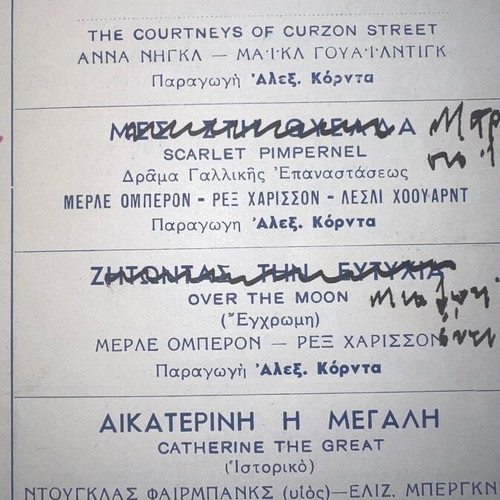 THE COURTNEYS OF CURZON STREET
ΑΝΝΑ ΝΗΓΚΛ — ΜΑ·Ι·ΚΛ ΓΟΥΑ·Ι·ΛΝΤΙΓΚ
Παραγωγὴ Ἀλεξ. Κόρντα
ΜΕΣ ΣΤΗ ΘΥΕΛΛΑ
SCARLET PIMPERNEL
Δρᾶμα Γαλλικῆς Ἐπαναστάσεως
ΜΕΡΛΕ ΟΜΠΕΡΟΝ - ΡΕΞ ΧΑΡΙΣΣΟΝ - ΛΕΣΛΙ ΧΟΟΥΑΡΝΤ
Παραγωγη Ἀλεξ. Κόρντα
ΖΗΤΩΝΤΑΣ ΤΗΝ ΕΥΤΥΧΙΑ
OVER THE MOON
(Ἔγχρωμη)
ΜΕΡΛΕ ΟΜΠΕΡΟΝ — ΡΕΞ ΧΑΡΙΣΣΟΝ
Παραγωγὴ Ἀλεξ. Κόρντα
ΑΙΚΑΤΕΡΙΝΗ Η ΜΕΓΑΛΗ
CATHERINE THE GREAT
(Ἱστορικὸ)
ΝΤΟΥΓΚΛΑΣ ΦΑΙΡΜΠΑΝΚΣ (υἱὸς)—ΕΛΙΖ. ΜΠΕΡΓΚΝ